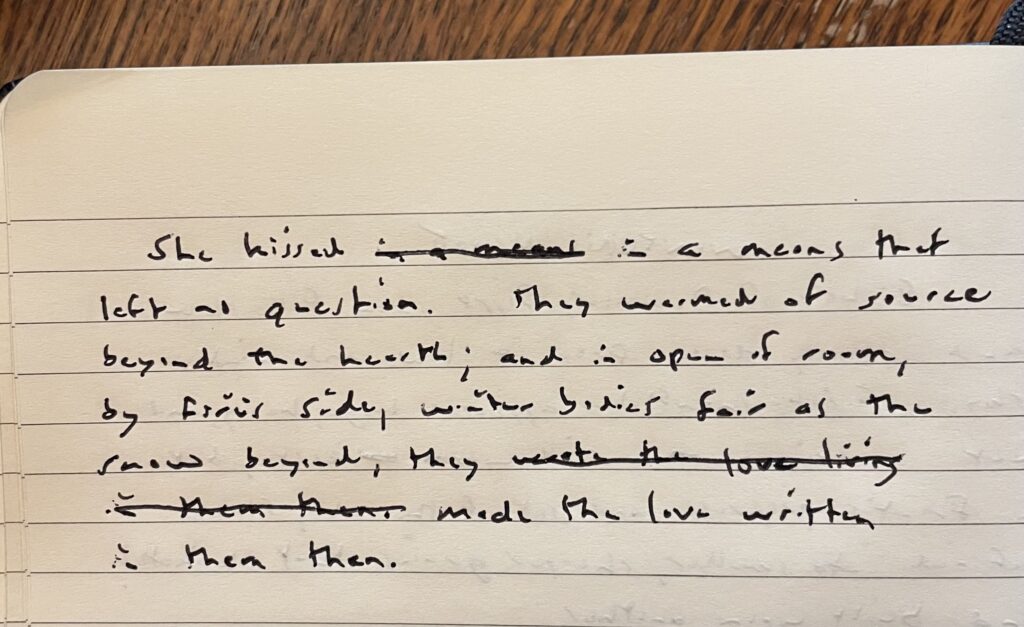 She kissed in a means in a means that
left no question. They warmed of source
beyond the hearth; and in open of room,
by fire's side, winter bodies fair as the
snow beyond, they wrote the love living
in them then. made the love written
in them then.